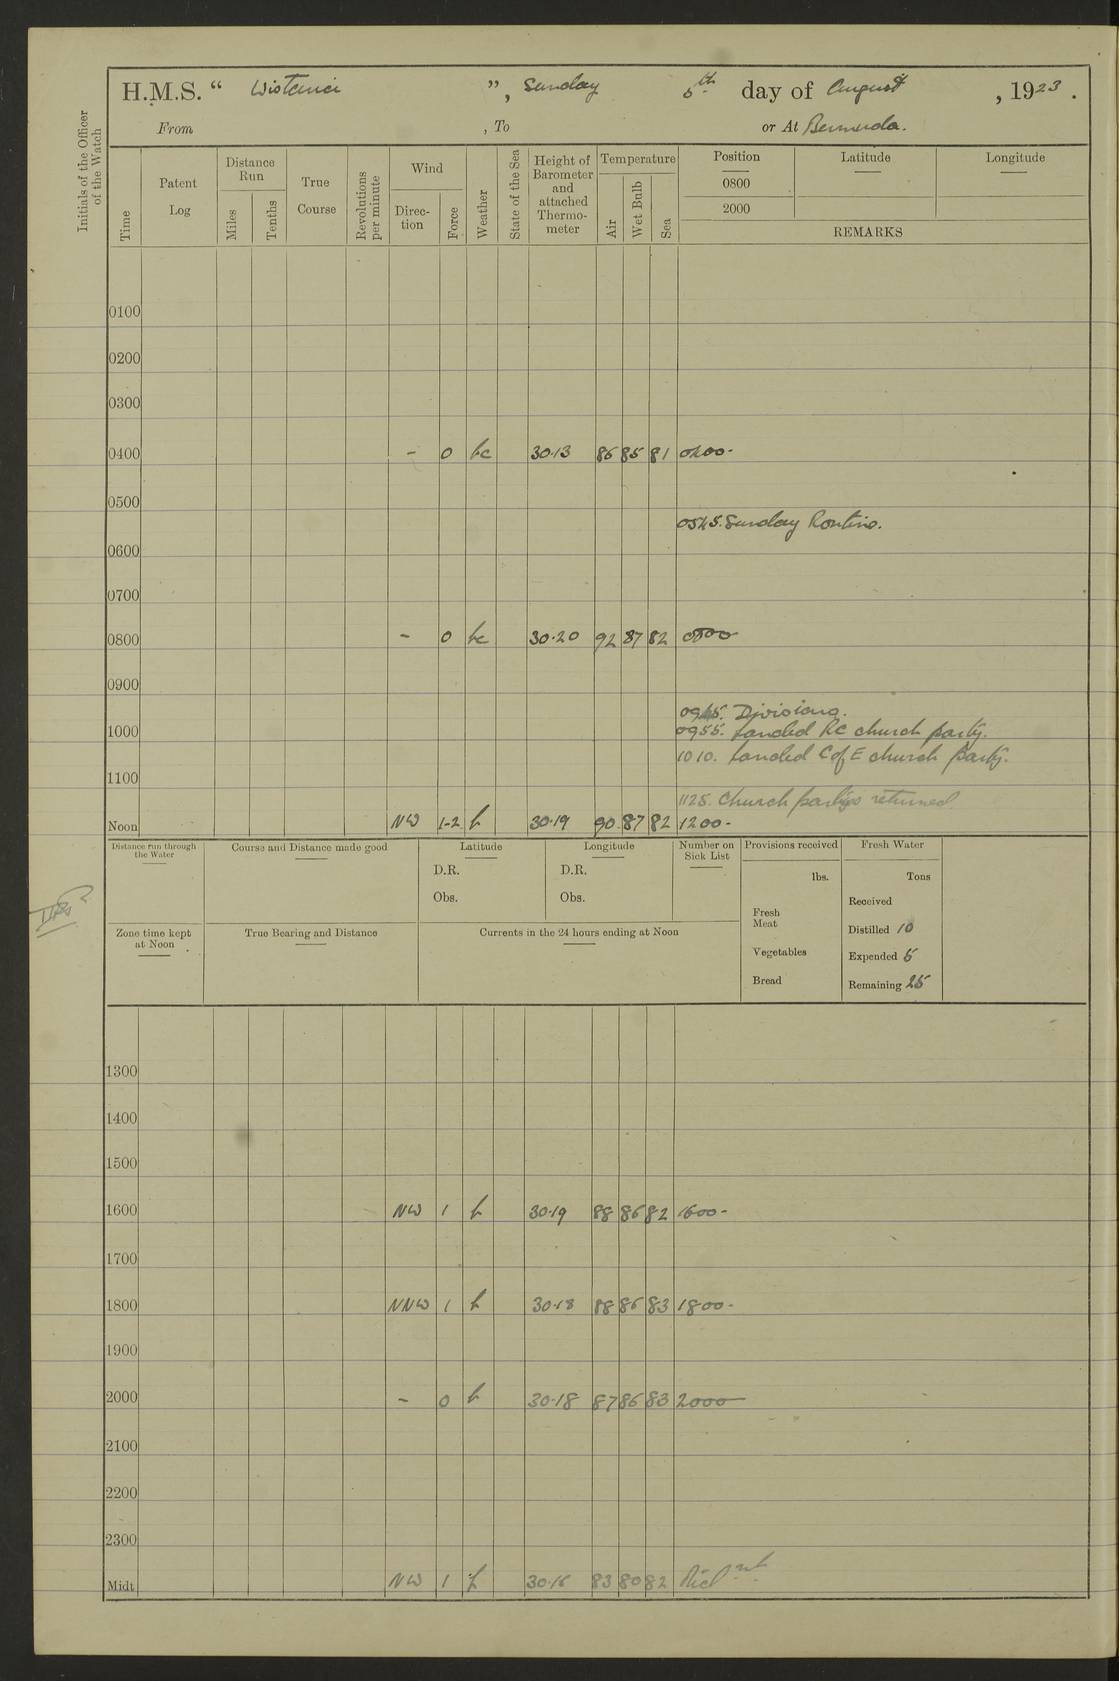 H.M.S. “ Wistaria ”, Sunday 5th day of August, 1923.
From , To or At Bermuda.
Initials of the Officer of the Watch
Time
Patent Log
Distance Run
Miles
Tenths
True Course
Revolutions per minute
Wind
Direc-tion
Force
Weather
State of the Sea
Height of Barometer and attached Thermo-meter
Temperature
Air
Wet Bulb
Sea
Position Latitude Longitude
0800
2000
REMARKS
0100
0200
0300
0400 - 0 bc 30.13 86 85 81 0400-
0500
0545. Sunday Routine.
0600
0700
0800 - 0 bc 30.20 92 87 82 0800
0900
0945. Divisions.
1000 0955. Landed RC church party.
1010. Landed C of E church party.
1100
1125. Church parties returned
Noon NW 1-2 b 30.19 90 87 82 1200-
Distance run through the Water
Course and Distance made good
Latitude
D.R.
Obs.
Longitude
D.R.
Obs.
Number on Sick List
Provisions received
lbs.
Fresh Meat
Vegetables
Bread
Fresh Water
Tons
Received
Distilled 10
Expended 5
Remaining 25
Zone time kept at Noon
True Bearing and Distance
Currents in the 24 hours ending at Noon
1300
1400
1500
1600 NW 1 b 30.19 88 86 82 1600-
1700
1800 NNW 1 b 30.18 88 86 83 1800-
1900
2000 - 0 b 30.18 87 86 83 2000
2100
2200
2300
Midt NW 1 b 30.16 83 80 82